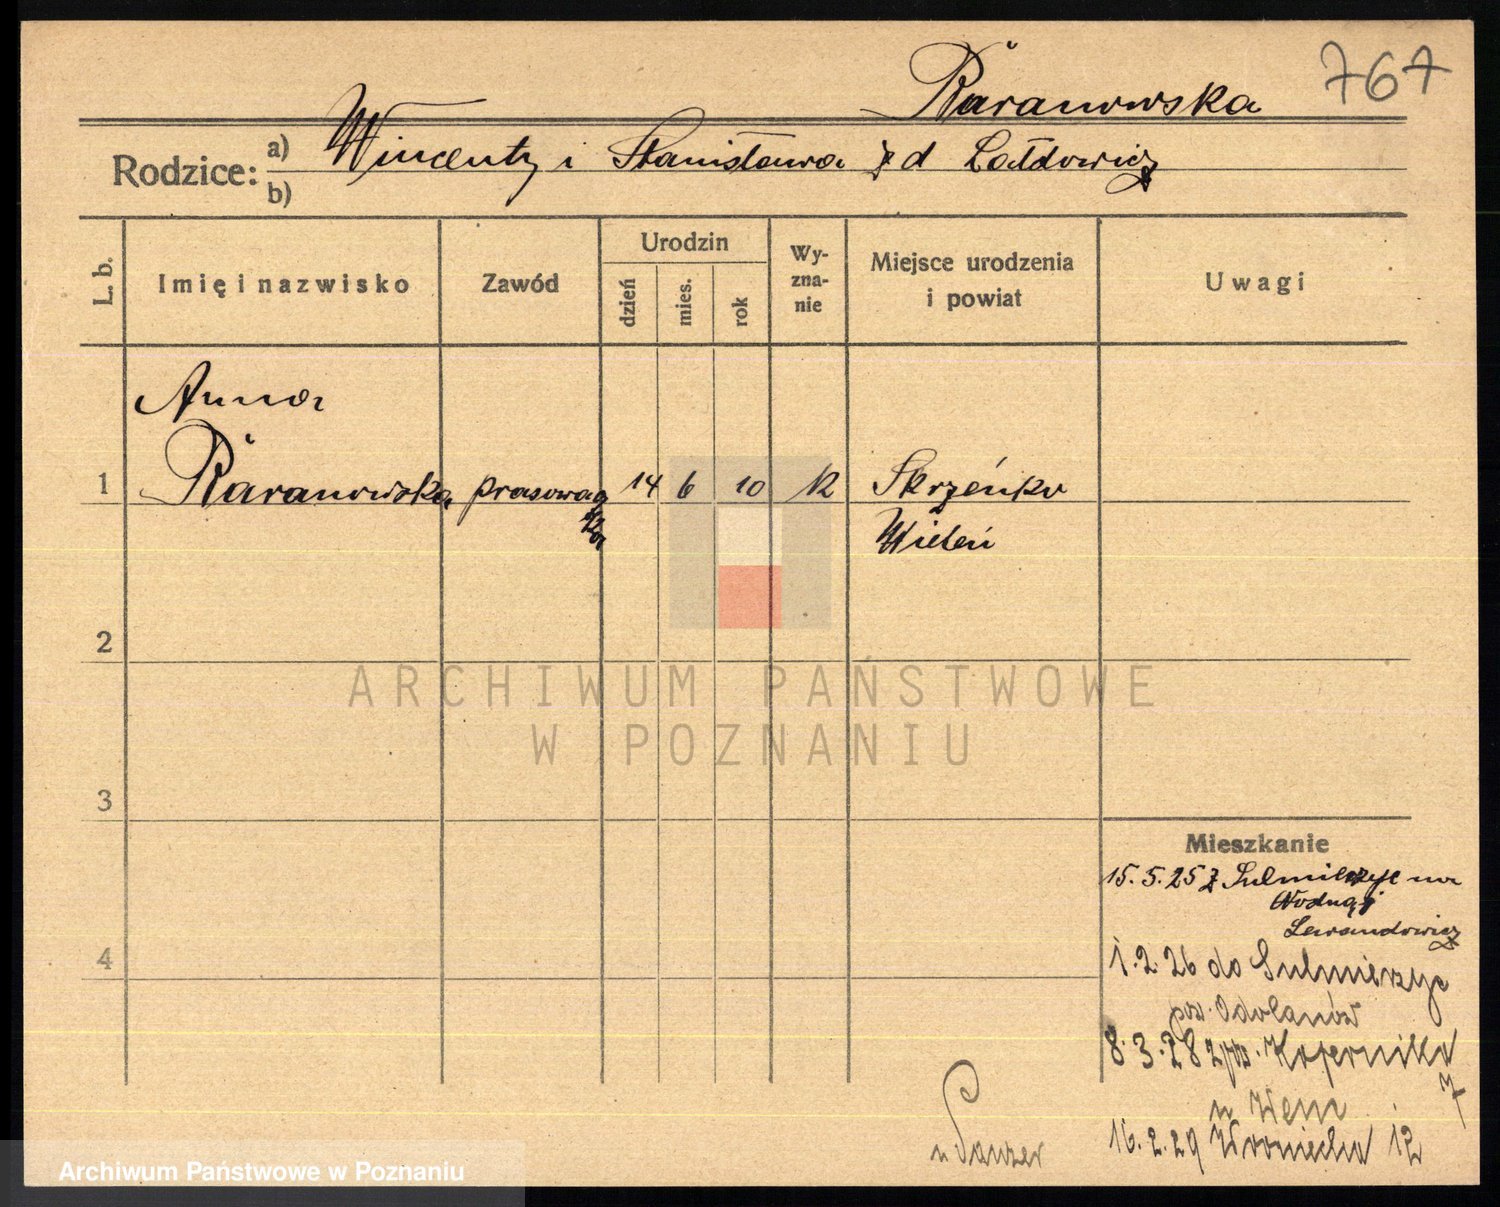 767
Baranowska
Rodzice: a) Wincenty i Stanisława z d Lałdowicz
b)
L. b.
Imię i nazwisko
Zawód
Urodzin
dzień
mies.
rok
Wy-
zna-
nie
Miejsce urodzenia
i powiat
Uwagi
Anna
1 Baranowska prasowaczka 14 6 10 k
Wieleń
2
ARCHIWUM PAŃSTWOWE
W POZNANIU
3
Mieszkanie
15.5.25 z Sulmierzyc na
Wodną
Lewandowicz
4
1.2.26 do Sulmierzyc
pow. Odolanów
8.3.28 Kopernika
7
16.2.29 Wroniecka 12
Archiwum Państwowe w Poznaniu